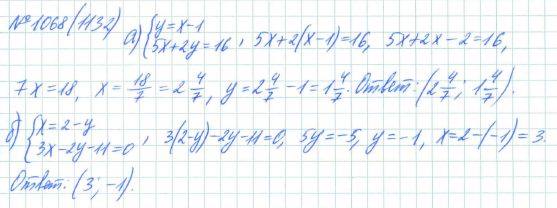 № 1068 (1132) а) { y = x - 1
5x + 2y = 16 , 5x + 2(x - 1) = 16, 5x + 2x - 2 = 16,
7x = 18, x = 18/7 = 2 4/7, y = 2 4/7 - 1 = 1 4/7. Ответ: (2 4/7; 1 4/7).
б) { x = 2 - y
3x - 2y - 11 = 0 , 3(2 - y) - 2y - 11 = 0, 5y = -5, y = -1, x = 2 - (-1) = 3.
Ответ: (3; -1).